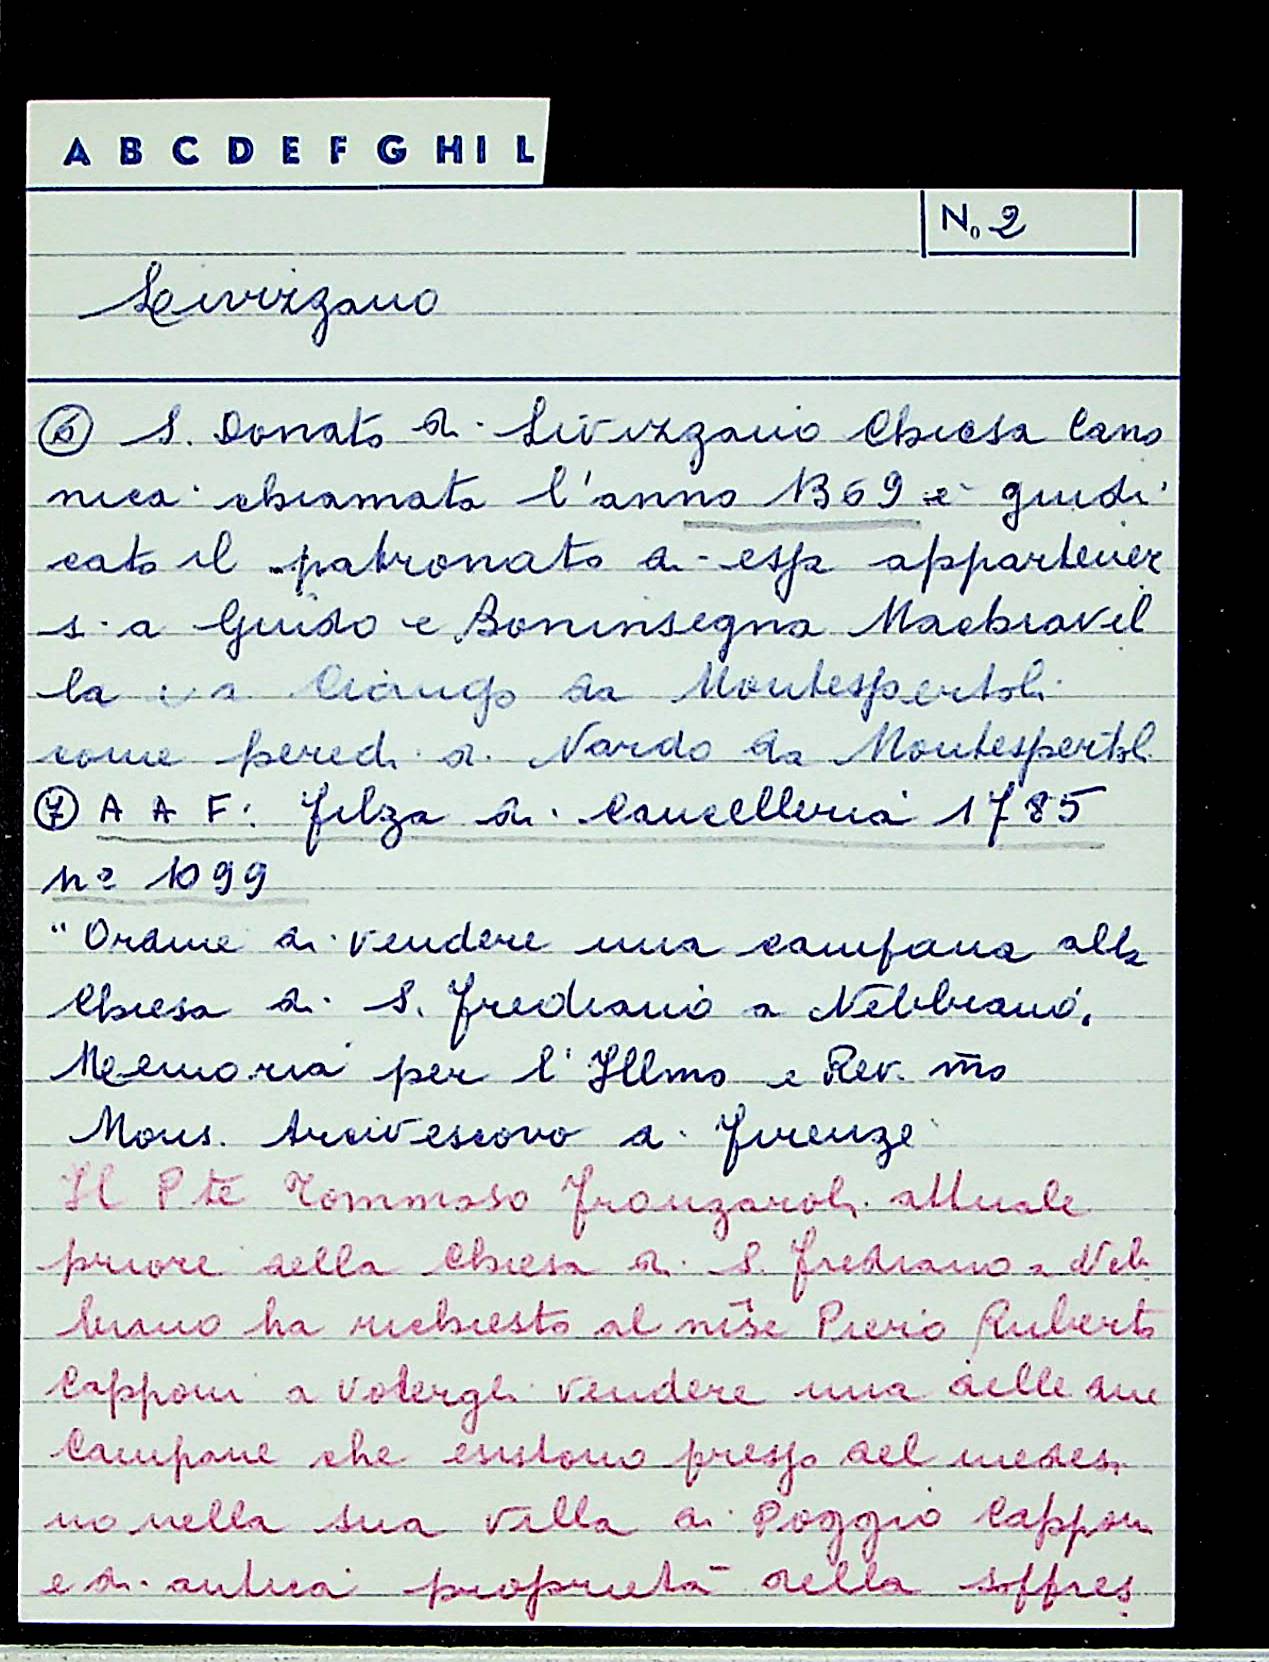 A B C D E F G H I L
No 2
Livizzano
⑥ S. Donato di Livizzano Chiesa Cano
nica chiamata l'anno 1369 è giudi
cato il patronato di essa appartener
si a Guido e Boninsegna Machiavel
la e a Ciango da Montespertoli
come heredi di Nardo da Montespertoli
⑦ A A F: Filza di Cancelleria 1785
n° 1099
"Ordine di vendere una campana alla
Chiesa di S. Frediano a Nebbiano.
Memoria per l'Illmo e Rev. m̅o
Mons. Arcivescovo di Firenze
Il P.te Tommaso Franzaroli attuale
priore della Chiesa di S. Frediano a Neb
biano ha richiesto al Piero Ruberto
Capponi a volergli vendere una delle due
Campane che esistono presso del medesi
mo nella sua villa di Poggio Capponi
e di antica proprietà della soppres